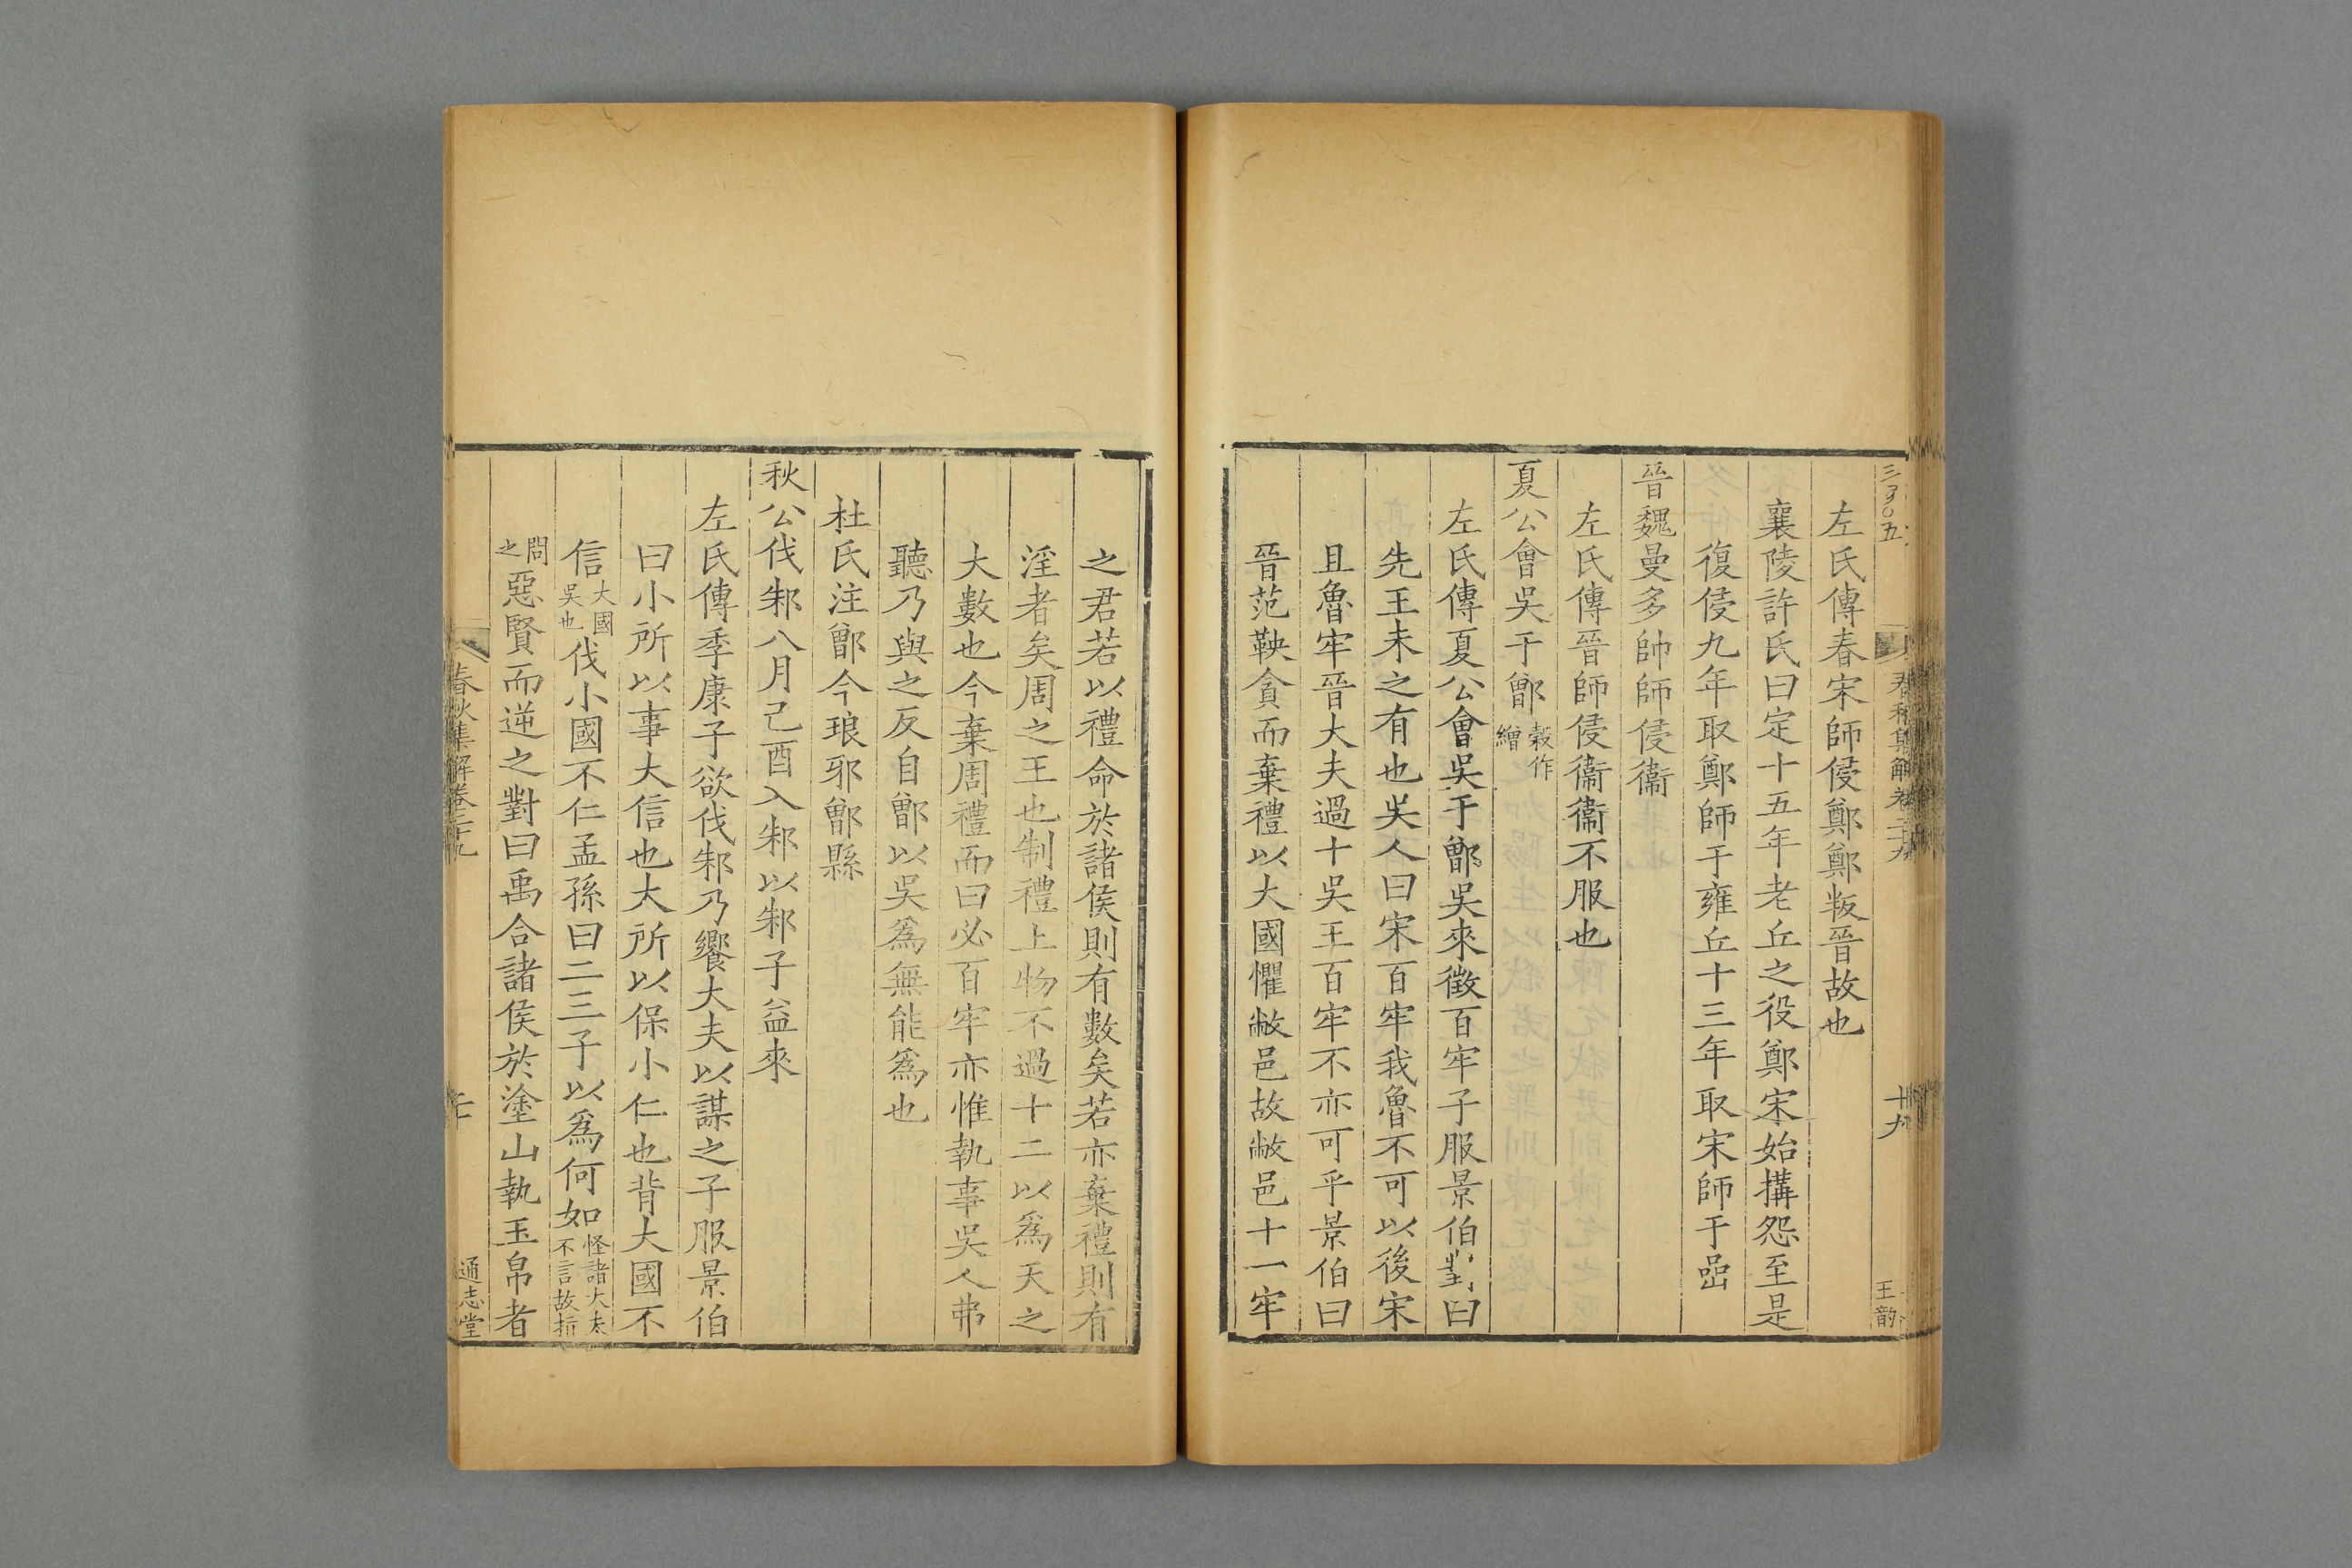 左氏傳春宋師侵鄭鄭叛晉故也
襄陵許氏曰定十五年老丘之役鄭宋始搆怨至是
復侵九年取鄭師于雍丘十三年取宋師于嵒
晉魏曼多帥師侵衞
左氏傳晉師侵衞衞不服也
夏公會吳于鄫穀作繒
左氏傳夏公會吳于鄫吳來徵百牢子服景伯對曰
先王未之有也吳人曰宋百牢我魯不可以後宋
且魯牢晉大夫過十吳王百牢不亦可乎景伯曰
晉范鞅貪而棄禮以大國懼敝邑故敝邑十一牢
之君若以禮命於諸侯則有數矣若亦棄禮則有
淫者矣周之王也制禮上物不過十二以爲天之
大數也今棄周禮而曰必百牢亦惟執事吳人弗
聽乃與之反自鄫以吳爲無能爲也
杜氏注鄫今琅邪鄫縣
秋公伐邾八月己酉入邾以邾子益來
左氏傳季康子欲伐邾乃饗大夫以謀之子服景伯
曰小所以事大信也大所以保小仁也背大國不
信大國吳也伐小國不仁孟孫曰二三子以爲何如怪諸大夫不言故指
問之惡賢而逆之對曰禹合諸侯於塗山執玉帛者
春秋集解卷二十九
通志堂
春秋集解卷二十九
十九
王韵